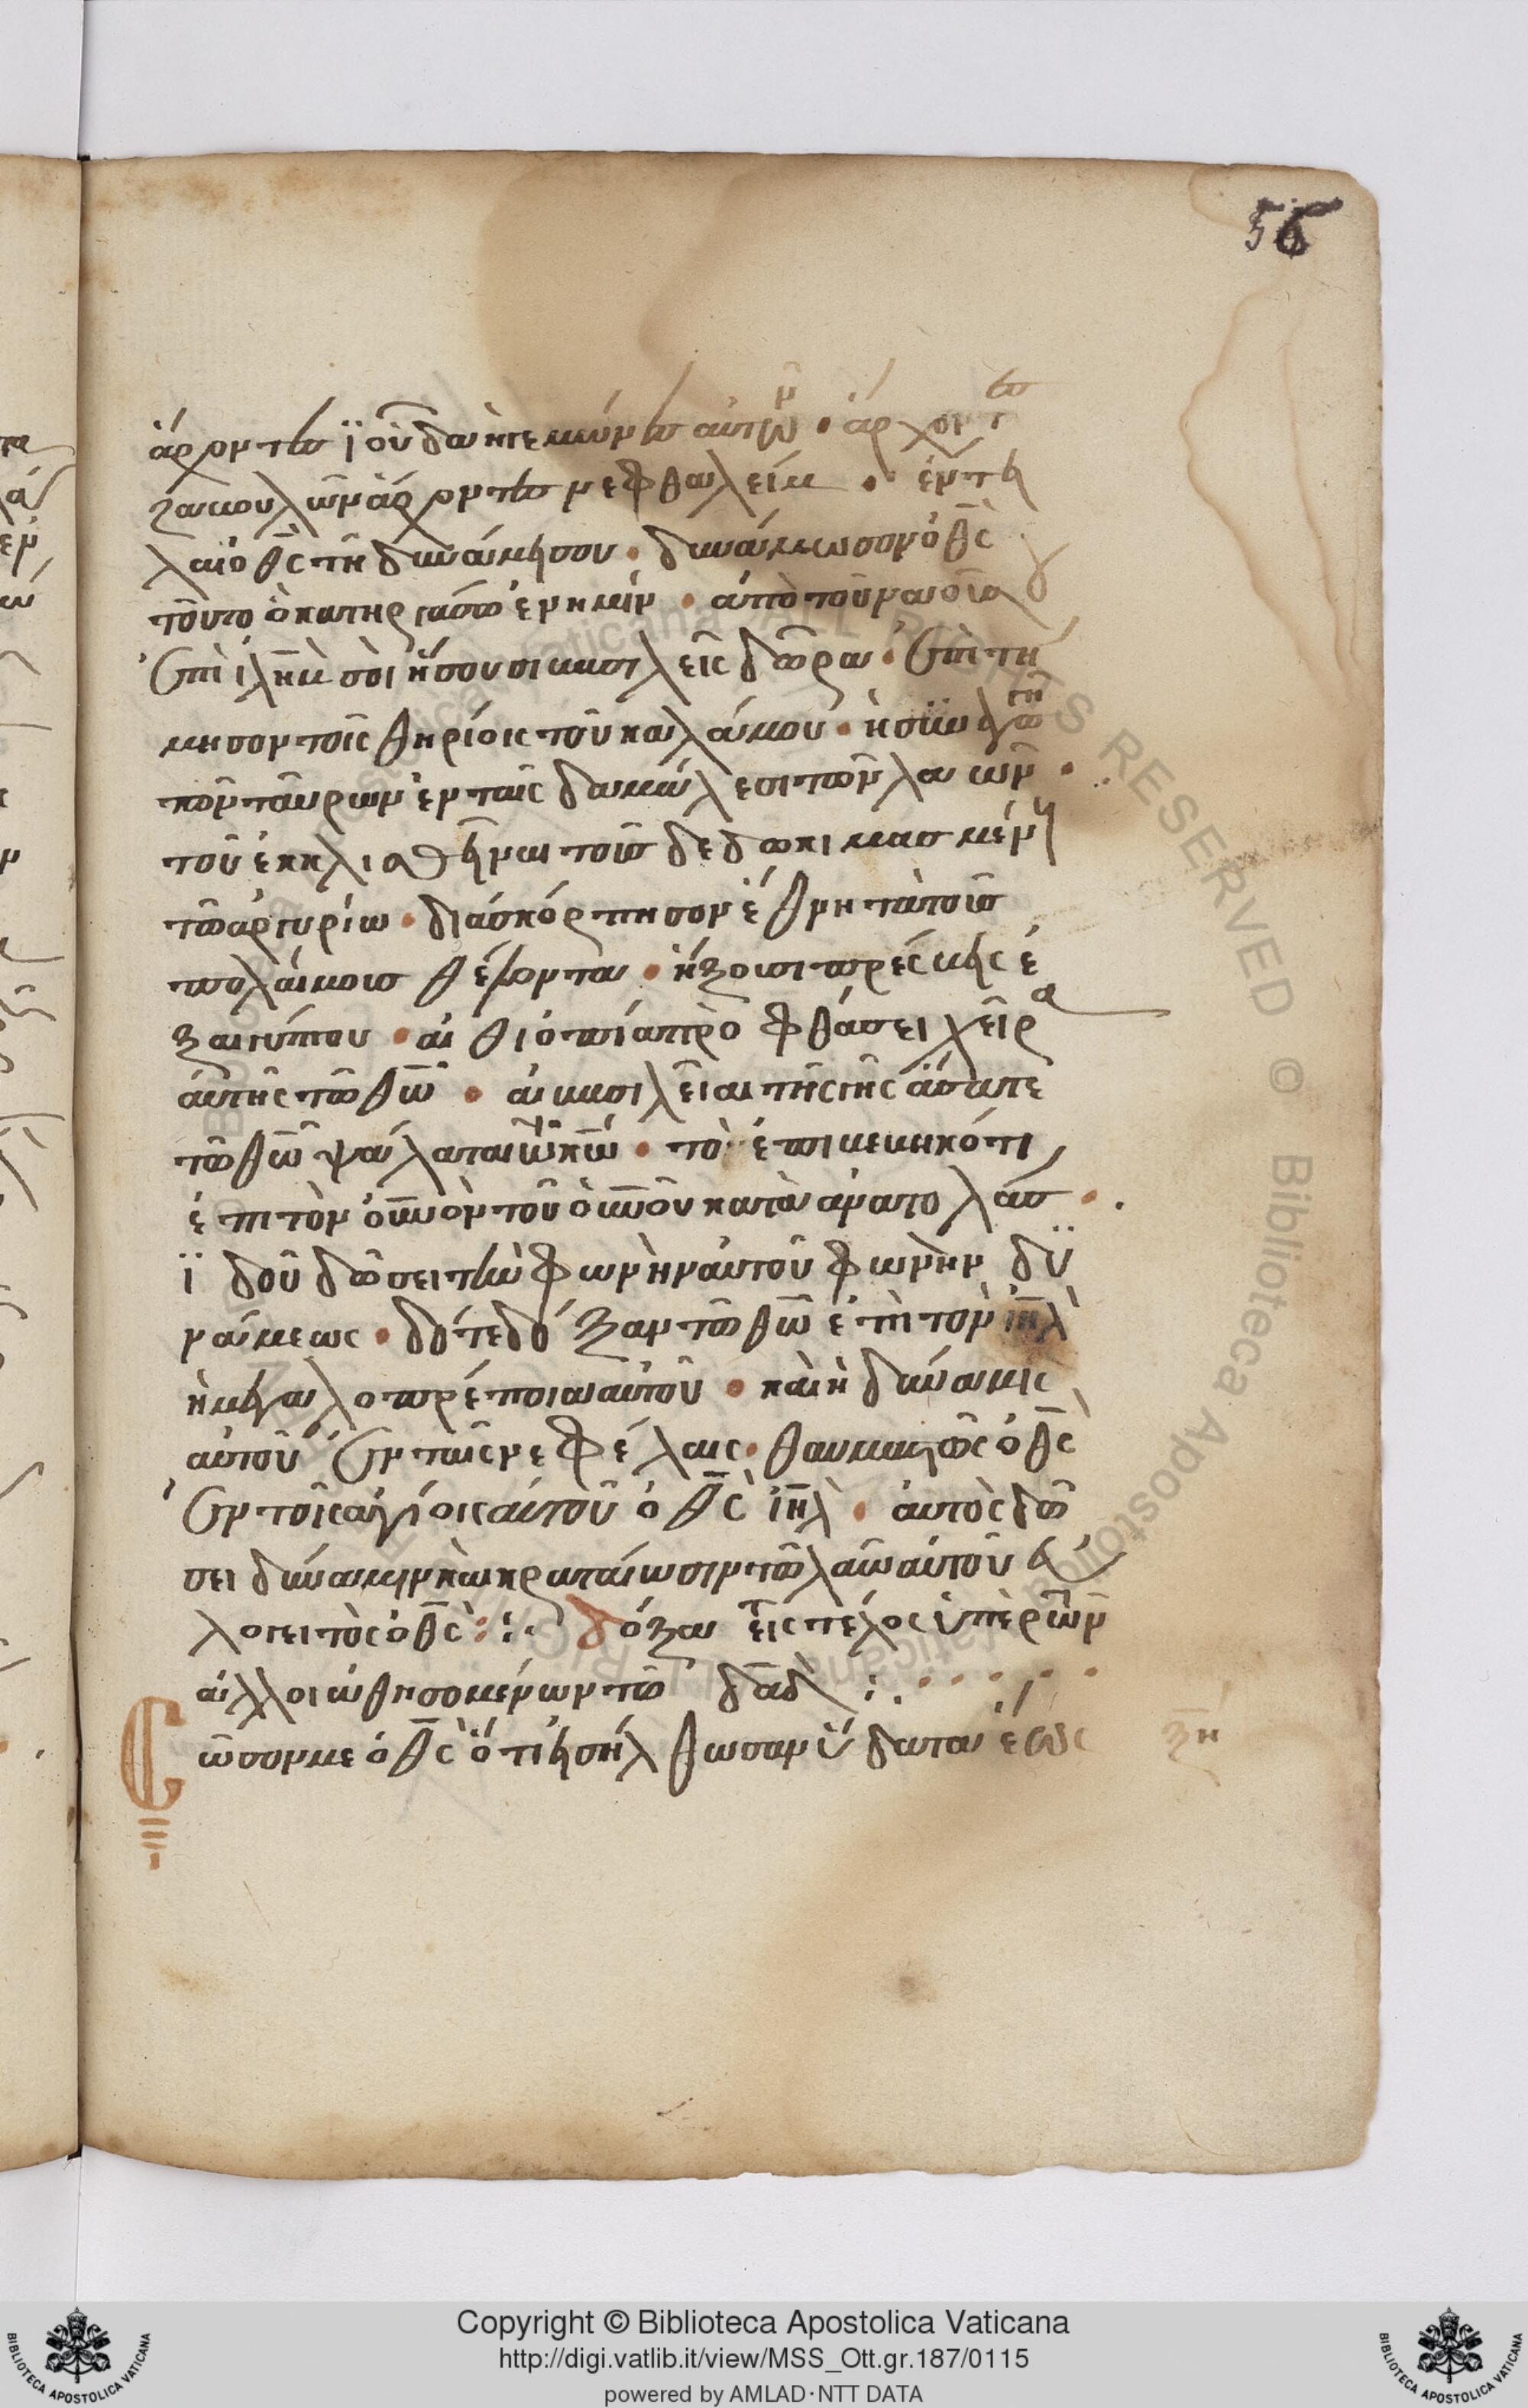 56
ἄρχοντες ϊούδα ἡγεμόνες αὐτῶν · ἄρχοντες
ζαβουλὼν ἄρχοντες νεφθαλείμ · ἔντει
λαι ὁ θς τῆ δυνάμει σου · δυνάμωσον ὁ θς
τοῦτο ὃ κατηρτίσω ἐν ἡμῖν · ἀπὸ τοῦ ναοῦ σου
ἐπὶ ιλημ σοὶ οἴσουσι βασιλεῖς δῶρα · ἐπιτί
μησον τοῖς θηρίοις τοῦ καλάμου · ἡ συναγω
τῶν ταύρων ἐν ταῖς δαμάλεσι τῶν λαῶν ·
τοῦ ἐκκλισθῆναι τοὺς δεδοκιμασμένους
τῶ ἀργυρίω · διασκόρπησον ἔθνη τὰ τοὺς
πολέμους θέλοντα · ἥξουσι πρέσβεις ἐ
ξ αιγύπτου · αἰθιοπία προφθάσει χεῖρα
αὐτῆς τῶ θω · αἱ βασιλεῖαι τῆς γῆς ἄσατε
τῶ θω ψάλατε τῶ κω · τῶ ἐπιβεβηκότι
ἐπὶ τὸν οὐνον τοῦ οὐνοῦ κατὰ ἀνατολάς ·
ϊδοῦ δώσει τὴν φωνὴν αὐτοῦ φωνὴν δυ
νάμεως · δότε δόξαν τῶ θω ἐπὶ τὸν ιηλ
ἡ μεγαλοπρέποια αὐτοῦ · καὶ ἡ δύναμις
αὐτοῦ ἐν ταῖς νεφέλαις · θαυμαστὸς ὁ θς
ἐν τοῖς ἁγίοις αὐτοῦ ὁ θς ιηλ · αὐτὸς δώ
σει δύναμιν καὶ κραταίωσιν τῶ λαῶ αὐτοῦ εὐ
λογειτὸς ὁ θς :· δόξα εἰς τέλος ὑπὲρ τῶν
ἀλλοιωθησομένων τῶ δαδ :·
Σῶσον με ὁ θς ὅτι εἰσήλθωσαν ὕδατα ἕως
ξη
Copyright © Biblioteca Apostolica Vaticana
http://digi.vatlib.it/view/MSS_Ott.gr.187/0115
powered by AMLAD·NTT DATA
BIBLIOTECA APOSTOLICA VATICANA
BIBLIOTECA APOSTOLICA VATICANA